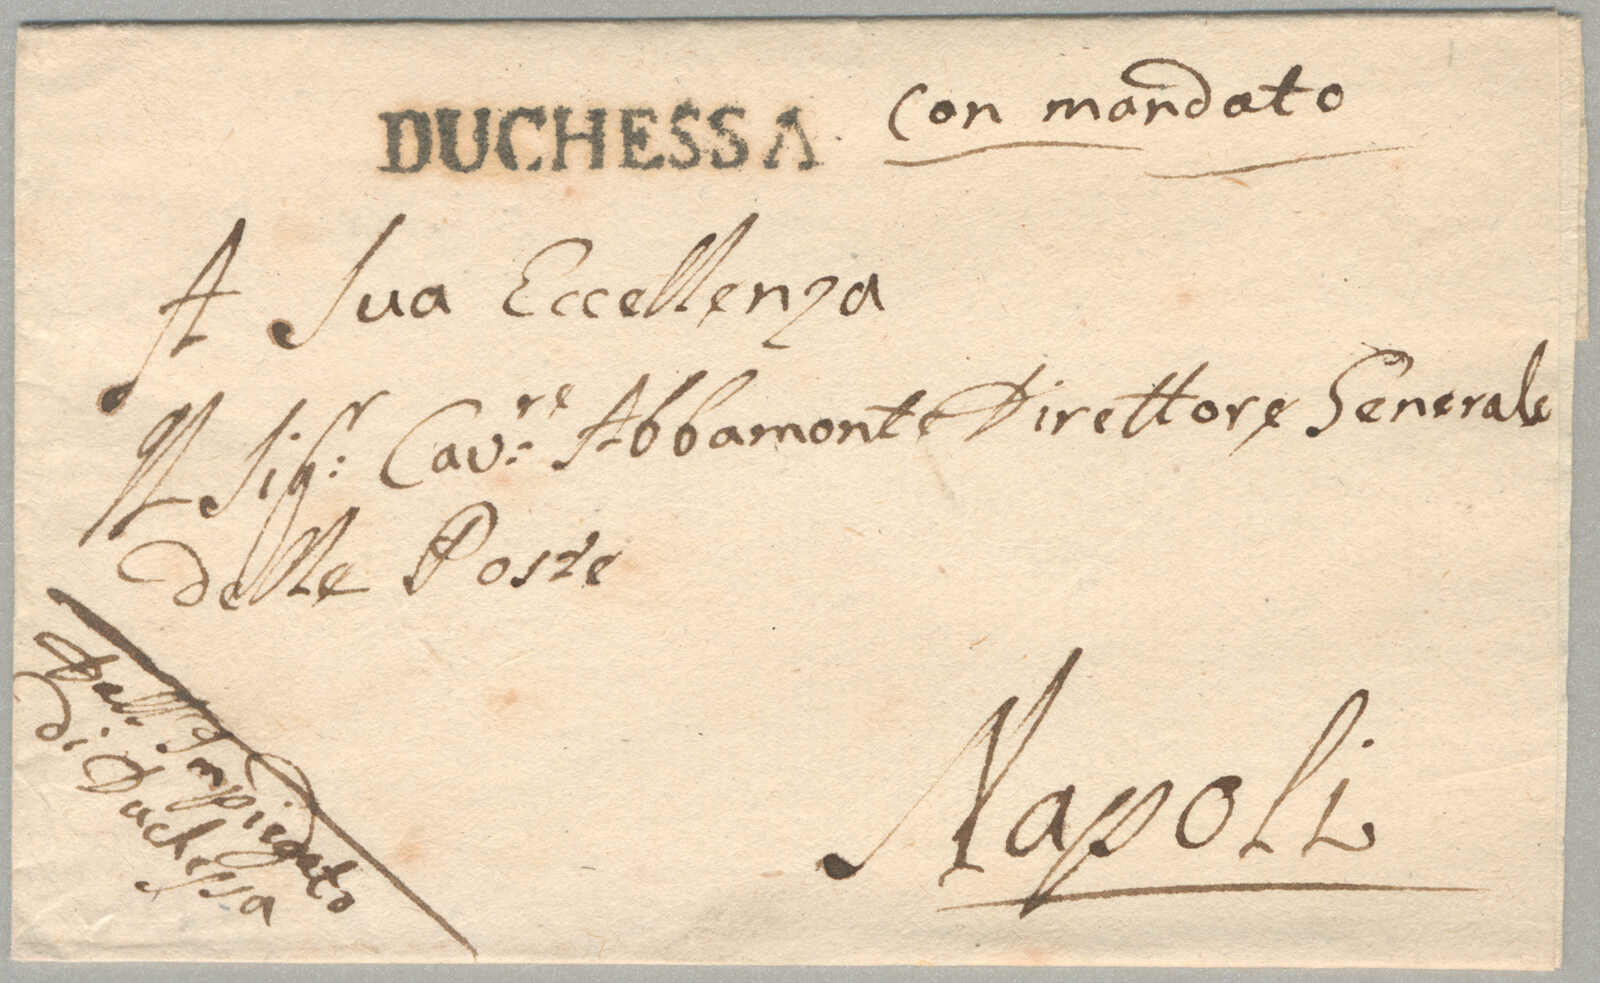 DUCHESSA con mandato
A Sua Eccellenza
Il Sig.r Cav.re Abbamonte Direttore Generale
delle Poste
Napoli
Dall'Impiegato
di Duchessa